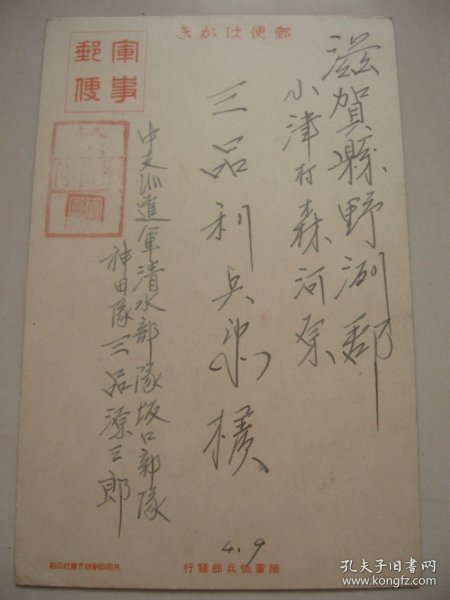 郵便はがき
軍事
郵便
滋賀縣野洲郡
小津村森河原
三品利兵衛様
中支派遣軍清水部隊坂口部隊
神田隊三品源三郎
4.9
陸軍恤兵部發行
孔夫子旧书网